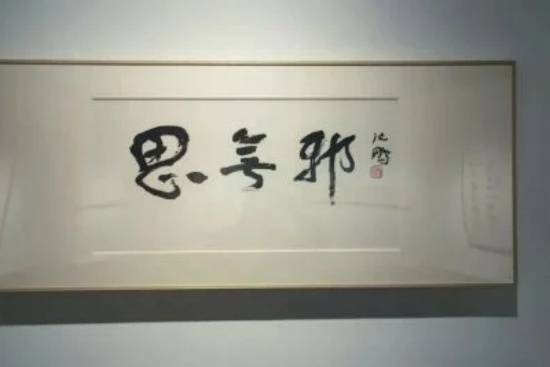 思無邪
沈鵬